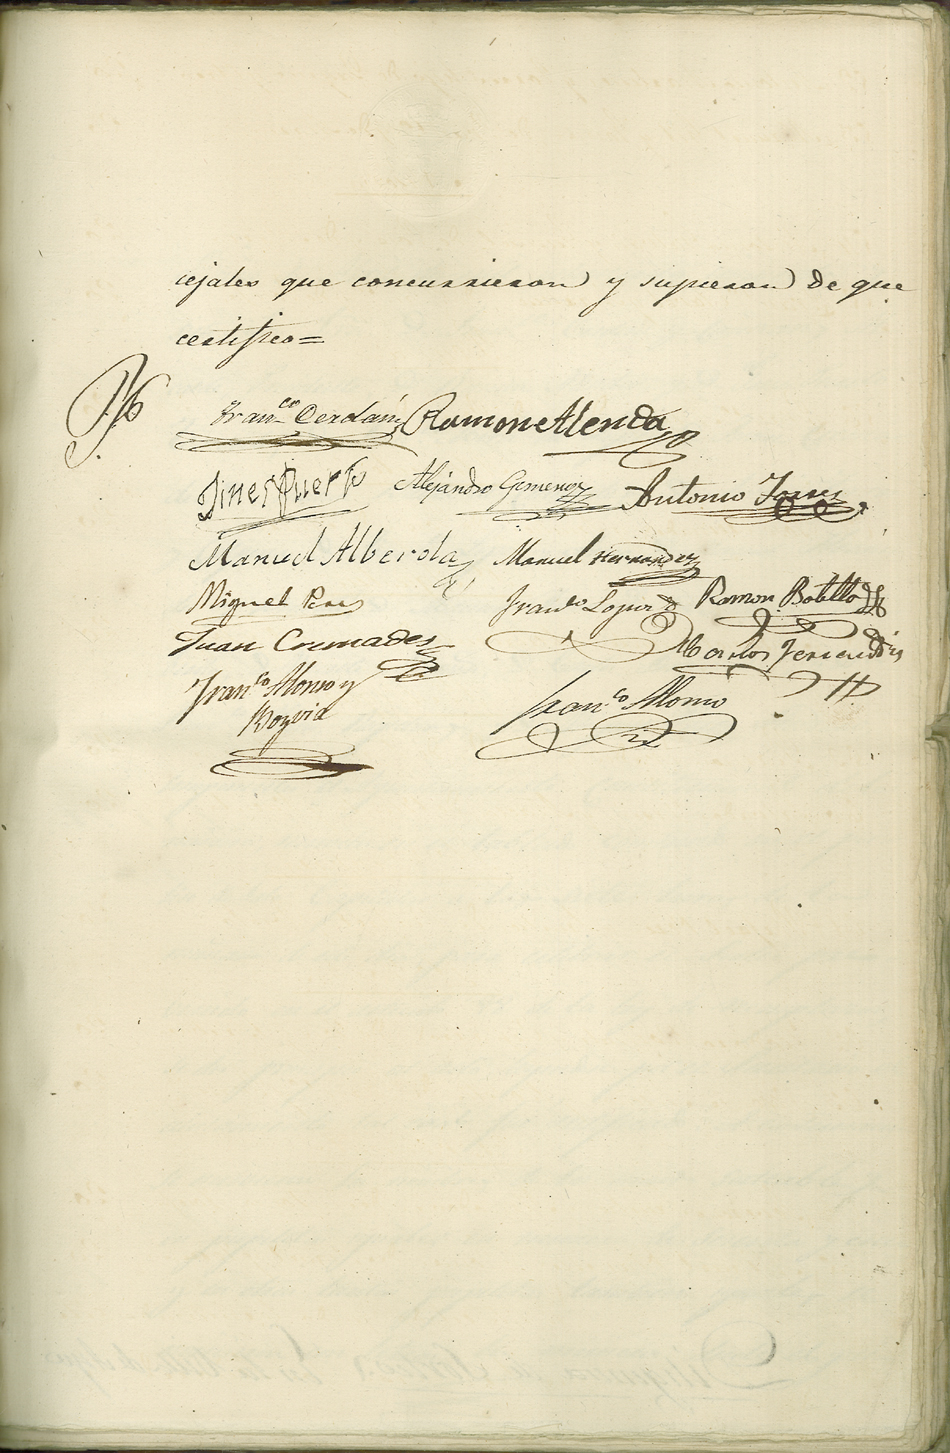 cejales que concurrieron y supieron de que
certifico=
Fran.co Cerdán Ramon Alenda
Jines Puerto Alejandro Gimenez Antonio Torres
Manuel Alberola Manuel Hernandez
Miguel Perez Fran.co Lopez Ramon Botella
Juan Cremades Carlos
Fran.co Alonso y
Fran.co Alonso